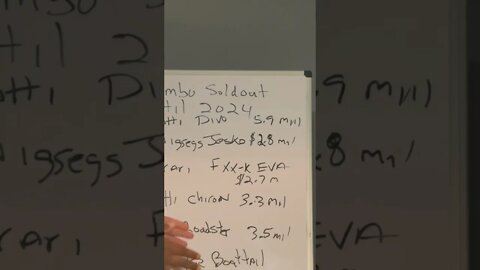 mbo Soldout
til 2024
tti Divo 5.9 mill
nigsegg Jesko $2.8 mil
rar, Fxx-K EVA
$2.7 m
tti chiron 3.3 mil
Roadster 3.5 mil
Boattail